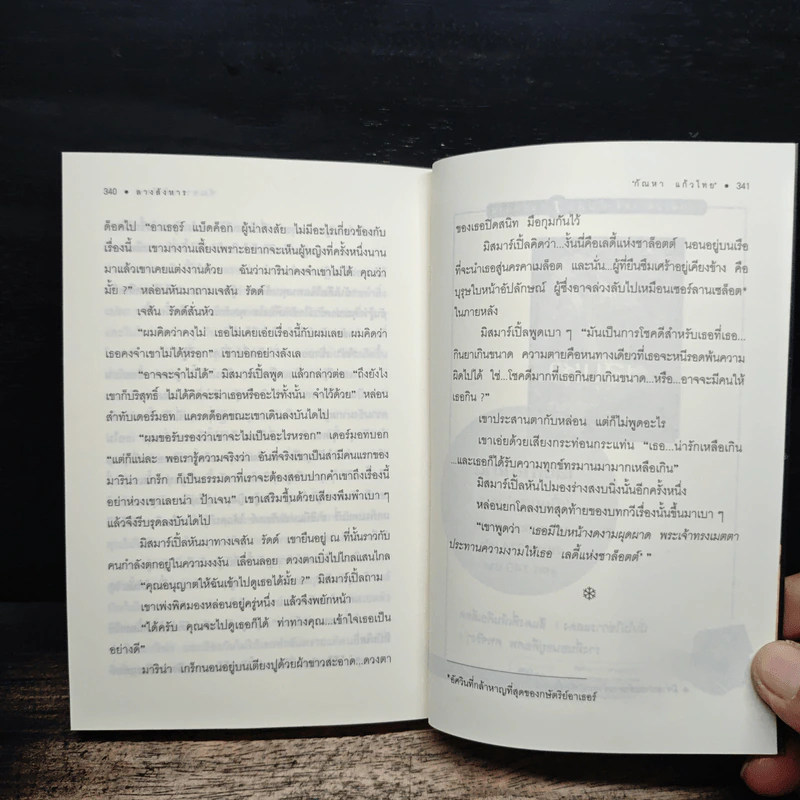 340 • ลางสังหาร
ด็อคไป “อาเธอร์ แบ็ดค็อก ผู้น่าสงสัย ไม่มีอะไรเกี่ยวข้องกับ
เรื่องนี้ เขามางานเลี้ยงเพราะอยากจะเห็นผู้หญิงที่ครั้งหนึ่งนาน
มาแล้วเขาเคยแต่งงานด้วย ฉันว่ามาริน่าคงจำเขาไม่ได้ คุณว่า
มั้ย ?” หล่อนหันมาถามเจสัน รัดด์
เจสัน รัดด์สั่นหัว
“ผมคิดว่าคงไม่ เธอไม่เคยเอ่ยเรื่องนี้กับผมเลย ผมคิดว่า
เธอคงจำเขาไม่ได้หรอก” เขาบอกอย่างลังเล
“อาจจะจำไม่ได้” มิสมาร์เปิ้ลพูด แล้วกล่าวต่อ “ถึงยังไง
เขาก็บริสุทธิ์ ไม่ได้คิดจะฆ่าเธอหรืออะไรทั้งนั้น จำไว้ด้วย” หล่อน
สำทับเดอร์มอท แครดด็อคขณะเขาเดินลงบันไดไป
“ผมขอรับรองว่าเขาจะไม่เป็นอะไรหรอก” เดอร์มอทบอก
“แต่ก็แน่ละ พอเรารู้ความจริงว่า อันที่จริงเขาเป็นสามีคนแรกของ
มาริน่า เกร็ก ก็เป็นธรรมดาที่เราจะต้องสอบปากคำเขาถึงเรื่องนี้
อย่าห่วงเขาเลยน่า ป้าเจน” เขาเสริมขึ้นด้วยเสียงพึมพำเบา ๆ
แล้วจึงรีบรุดลงบันไดไป
มิสมาร์เปิ้ลหันมาทางเจสัน รัดด์ เขายืนอยู่ ณ ที่นั้นราวกับ
คนกำลังตกอยู่ในความงงงัน เลื่อนลอย ดวงตาเบิ่งไปไกลแสนไกล
“คุณอนุญาตให้ฉันเข้าไปดูเธอได้มั้ย ?” มิสมาร์เปิ้ลถาม
เขาเพ่งพิศมองหล่อนอยู่ครู่หนึ่ง แล้วจึงพยักหน้า
“ได้ครับ คุณจะไปดูเธอก็ได้ ท่าทางคุณ...เข้าใจเธอเป็น
อย่างดี”
มาริน่า เกร็กนอนอยู่บนเตียงปูด้วยผ้าขาวสะอาด...ดวงตา
‘กัณหา แก้วไทย’ • 341
ของเธอปิดสนิท มือกุมกันไว้
มิสมาร์เปิ้ลคิดว่า...งั้นนี่คือเลดี้แห่งชาล็อตต์ นอนอยู่บนเรือ
ที่จะนำเธอสู่นครคาเมล็อต และนั่น...ผู้ที่ยืนซึมเศร้าอยู่เคียงข้าง คือ
บุรุษใบหน้าอัปลักษณ์ ผู้ซึ่งอาจล่วงลับไปเหมือนเซอร์ลานเซล็อต*
ในภายหลัง
มิสมาร์เปิ้ลพูดเบา ๆ “มันเป็นการโชคดีสำหรับเธอที่เธอ...
กินยาเกินขนาด ความตายคือหนทางเดียวที่เธอจะหนีรอดพ้นความ
ผิดไปได้ ใช่...โชคดีมากที่เธอกินยาเกินขนาด...หรือ...อาจจะมีคนให้
เธอกิน ?”
เขาประสานตากับหล่อน แต่ก็ไม่พูดอะไร
เขาเอ่ยด้วยเสียงกระท่อนกระแท่น “เธอ...น่ารักเหลือเกิน
...และเธอก็ได้รับความทุกข์ทรมานมามากเหลือเกิน”
มิสมาร์เปิ้ลหันไปมองร่างสงบนิ่งนั้นอีกครั้งหนึ่ง
หล่อนยกโคลงบทสุดท้ายของบทกวีเรื่องนั้นขึ้นมาเบา ๆ
“เขาพูดว่า ‘เธอมีใบหน้างดงามผุดผาด พระเจ้าทรงเมตตา
ประทานความงามให้เธอ เลดี้แห่งชาล็อตต์’ ”
*อัศวินที่กล้าหาญที่สุดของกษัตริย์อาเธอร์